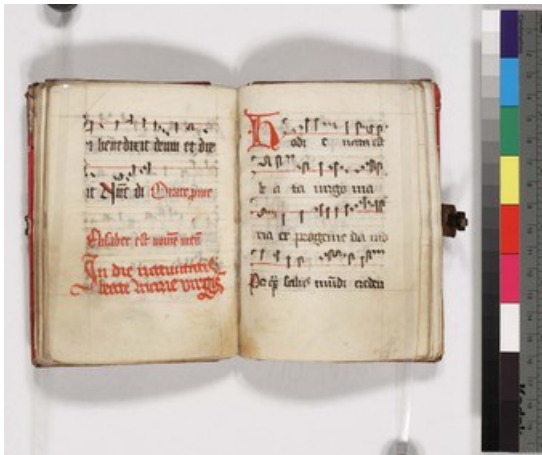 n benedixit deum et dix
it Nūc di Orate pme
Elisabet est nomē meū
In die natiuitatis
beate marie virgīs
Hodi e nata est
b a ta virgo ma
ria ex progenie da uid
Pe q̄ salus mūdi creden